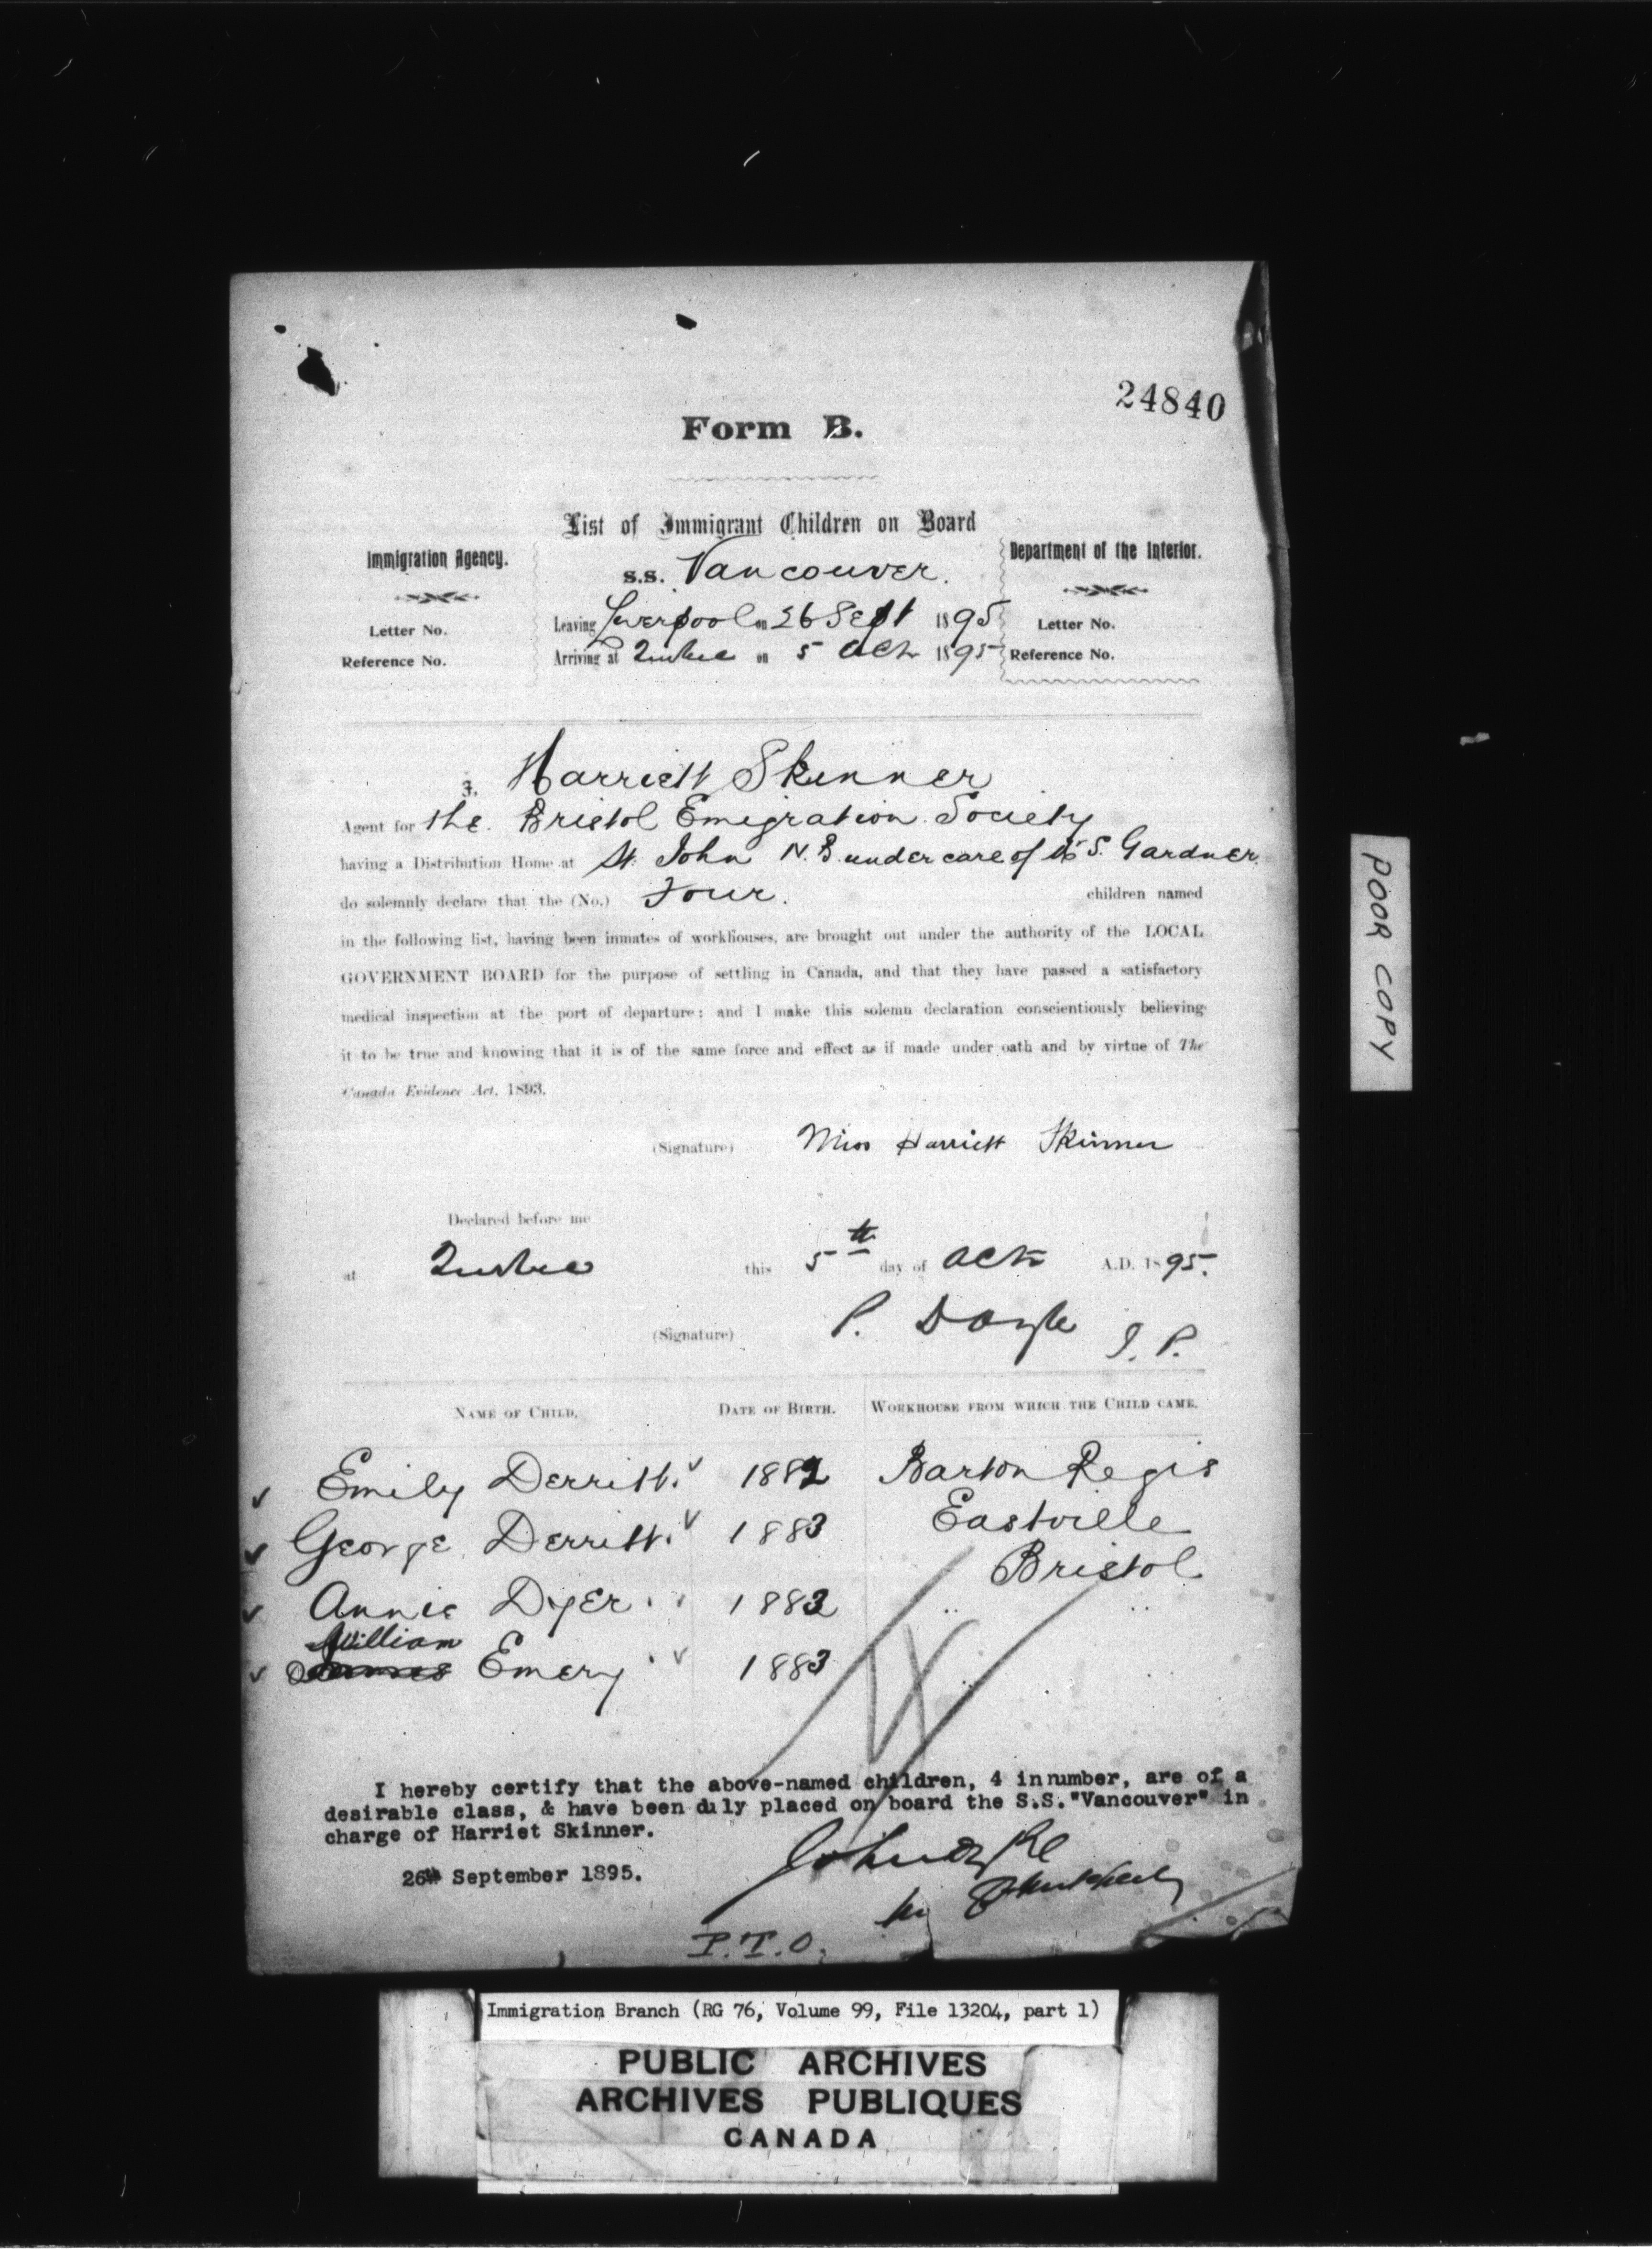 24840
Form B.
List of Immigrant Children on Board
Immigration Agency.
Department of the Interior.
S.S. Vancouver.
Letter No.
Leaving Liverpool on 26 Sept 1895
Letter No.
Reference No.
Arriving at Quebec on 5 Oct 1895
Reference No.
I, Harriett Skinner
Agent for the Bristol Emigration Society
having a Distribution Home at St. John N.B. under care of Mr S. Gardner
do solemnly declare that the (No.) Four. children named
in the following list, having been inmates of workhouses, are brought out under the authority of the LOCAL
GOVERNMENT BOARD for the purpose of settling in Canada, and that they have passed a satisfactory
medical inspection at the port of departure; and I make this solemn declaration conscientiously believing
it to be true and knowing that it is of the same force and effect as if made under oath and by virtue of The
Canada Evidence Act, 1893.
(Signature) Miss Harriett Skinner
Declared before me
at Quebec this 5th day of Oct A.D. 1895.
(Signature) P. Doyle J. P.
NAME OF CHILD. DATE OF BIRTH. WORKHOUSE FROM WHICH THE CHILD CAME.
Emily Derritt. 1882 Barton Regis
George Derritt. 1883 Eastville
Bristol
Annie Dyer. 1883 " "
William
Emery 1883 "
I hereby certify that the above-named children, 4 in number, are of a
desirable class, & have been duly placed on board the S.S."Vancouver" in
charge of Harriet Skinner.
26th September 1895.
John Dyke
P.T.O.
POOR COPY
Immigration Branch (RG 76, Volume 99, File 13204, part 1)
PUBLIC ARCHIVES
ARCHIVES PUBLIQUES
CANADA